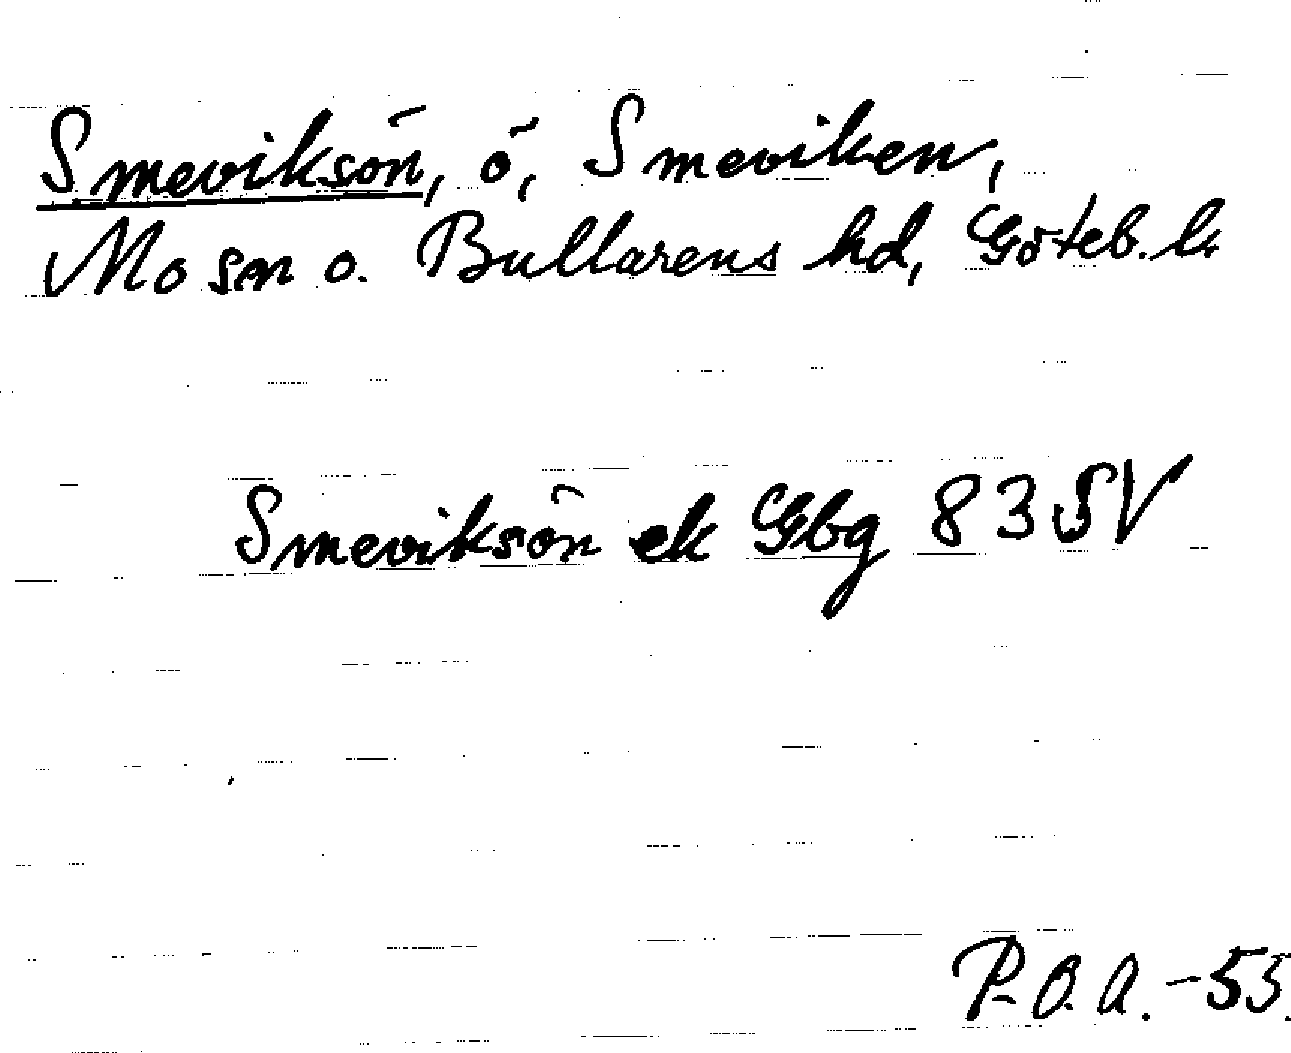 Smeviksön, ö, Smeviken,
Mo sn o. Bullarens hd, Göteb. l.
Smeviksön ek Gbg 83 SV
P. O. A. -55.